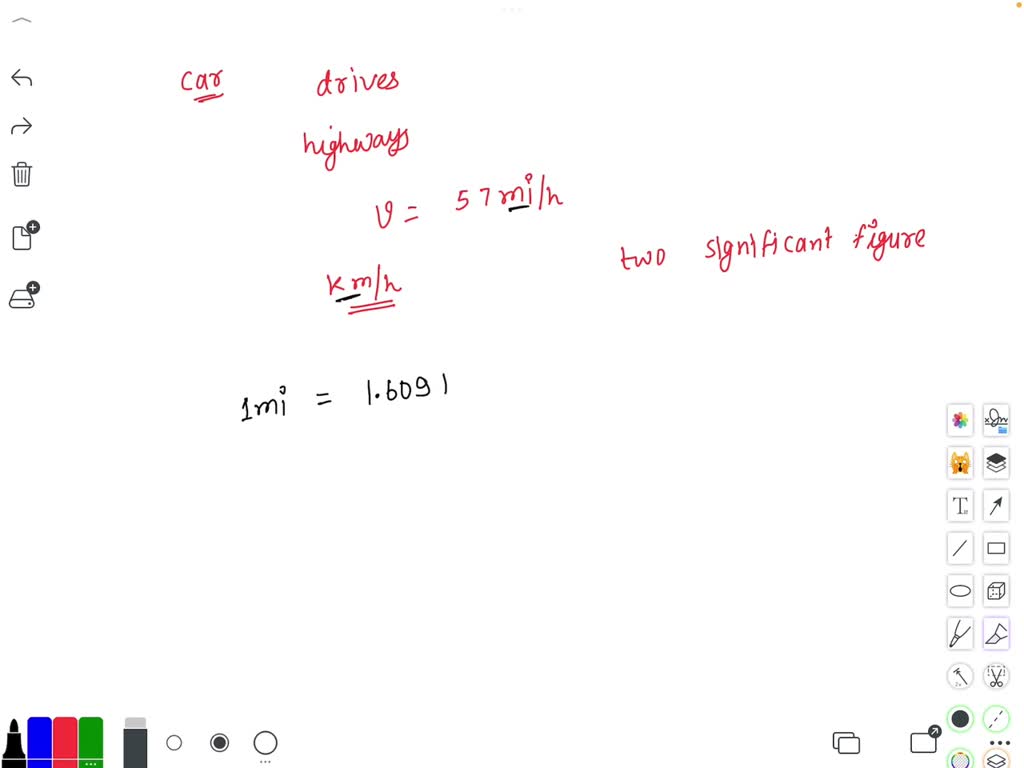 car drives
highways
v = 57 mi/h
two significant figure
km/h
1mi = 1.609 1
T